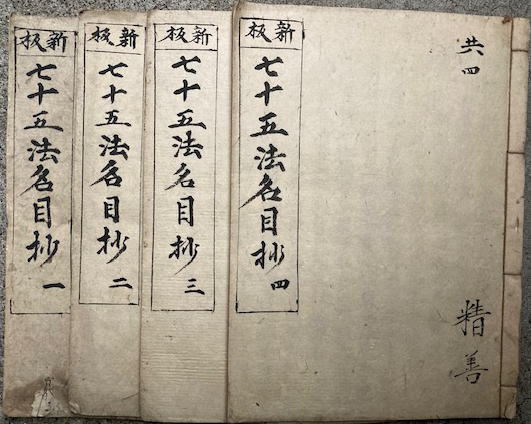 共四
精善
新板
七十五法名目抄
四
新板
七十五法名目抄
三
新板
七十五法名目抄
二
新板
七十五法名目抄
一